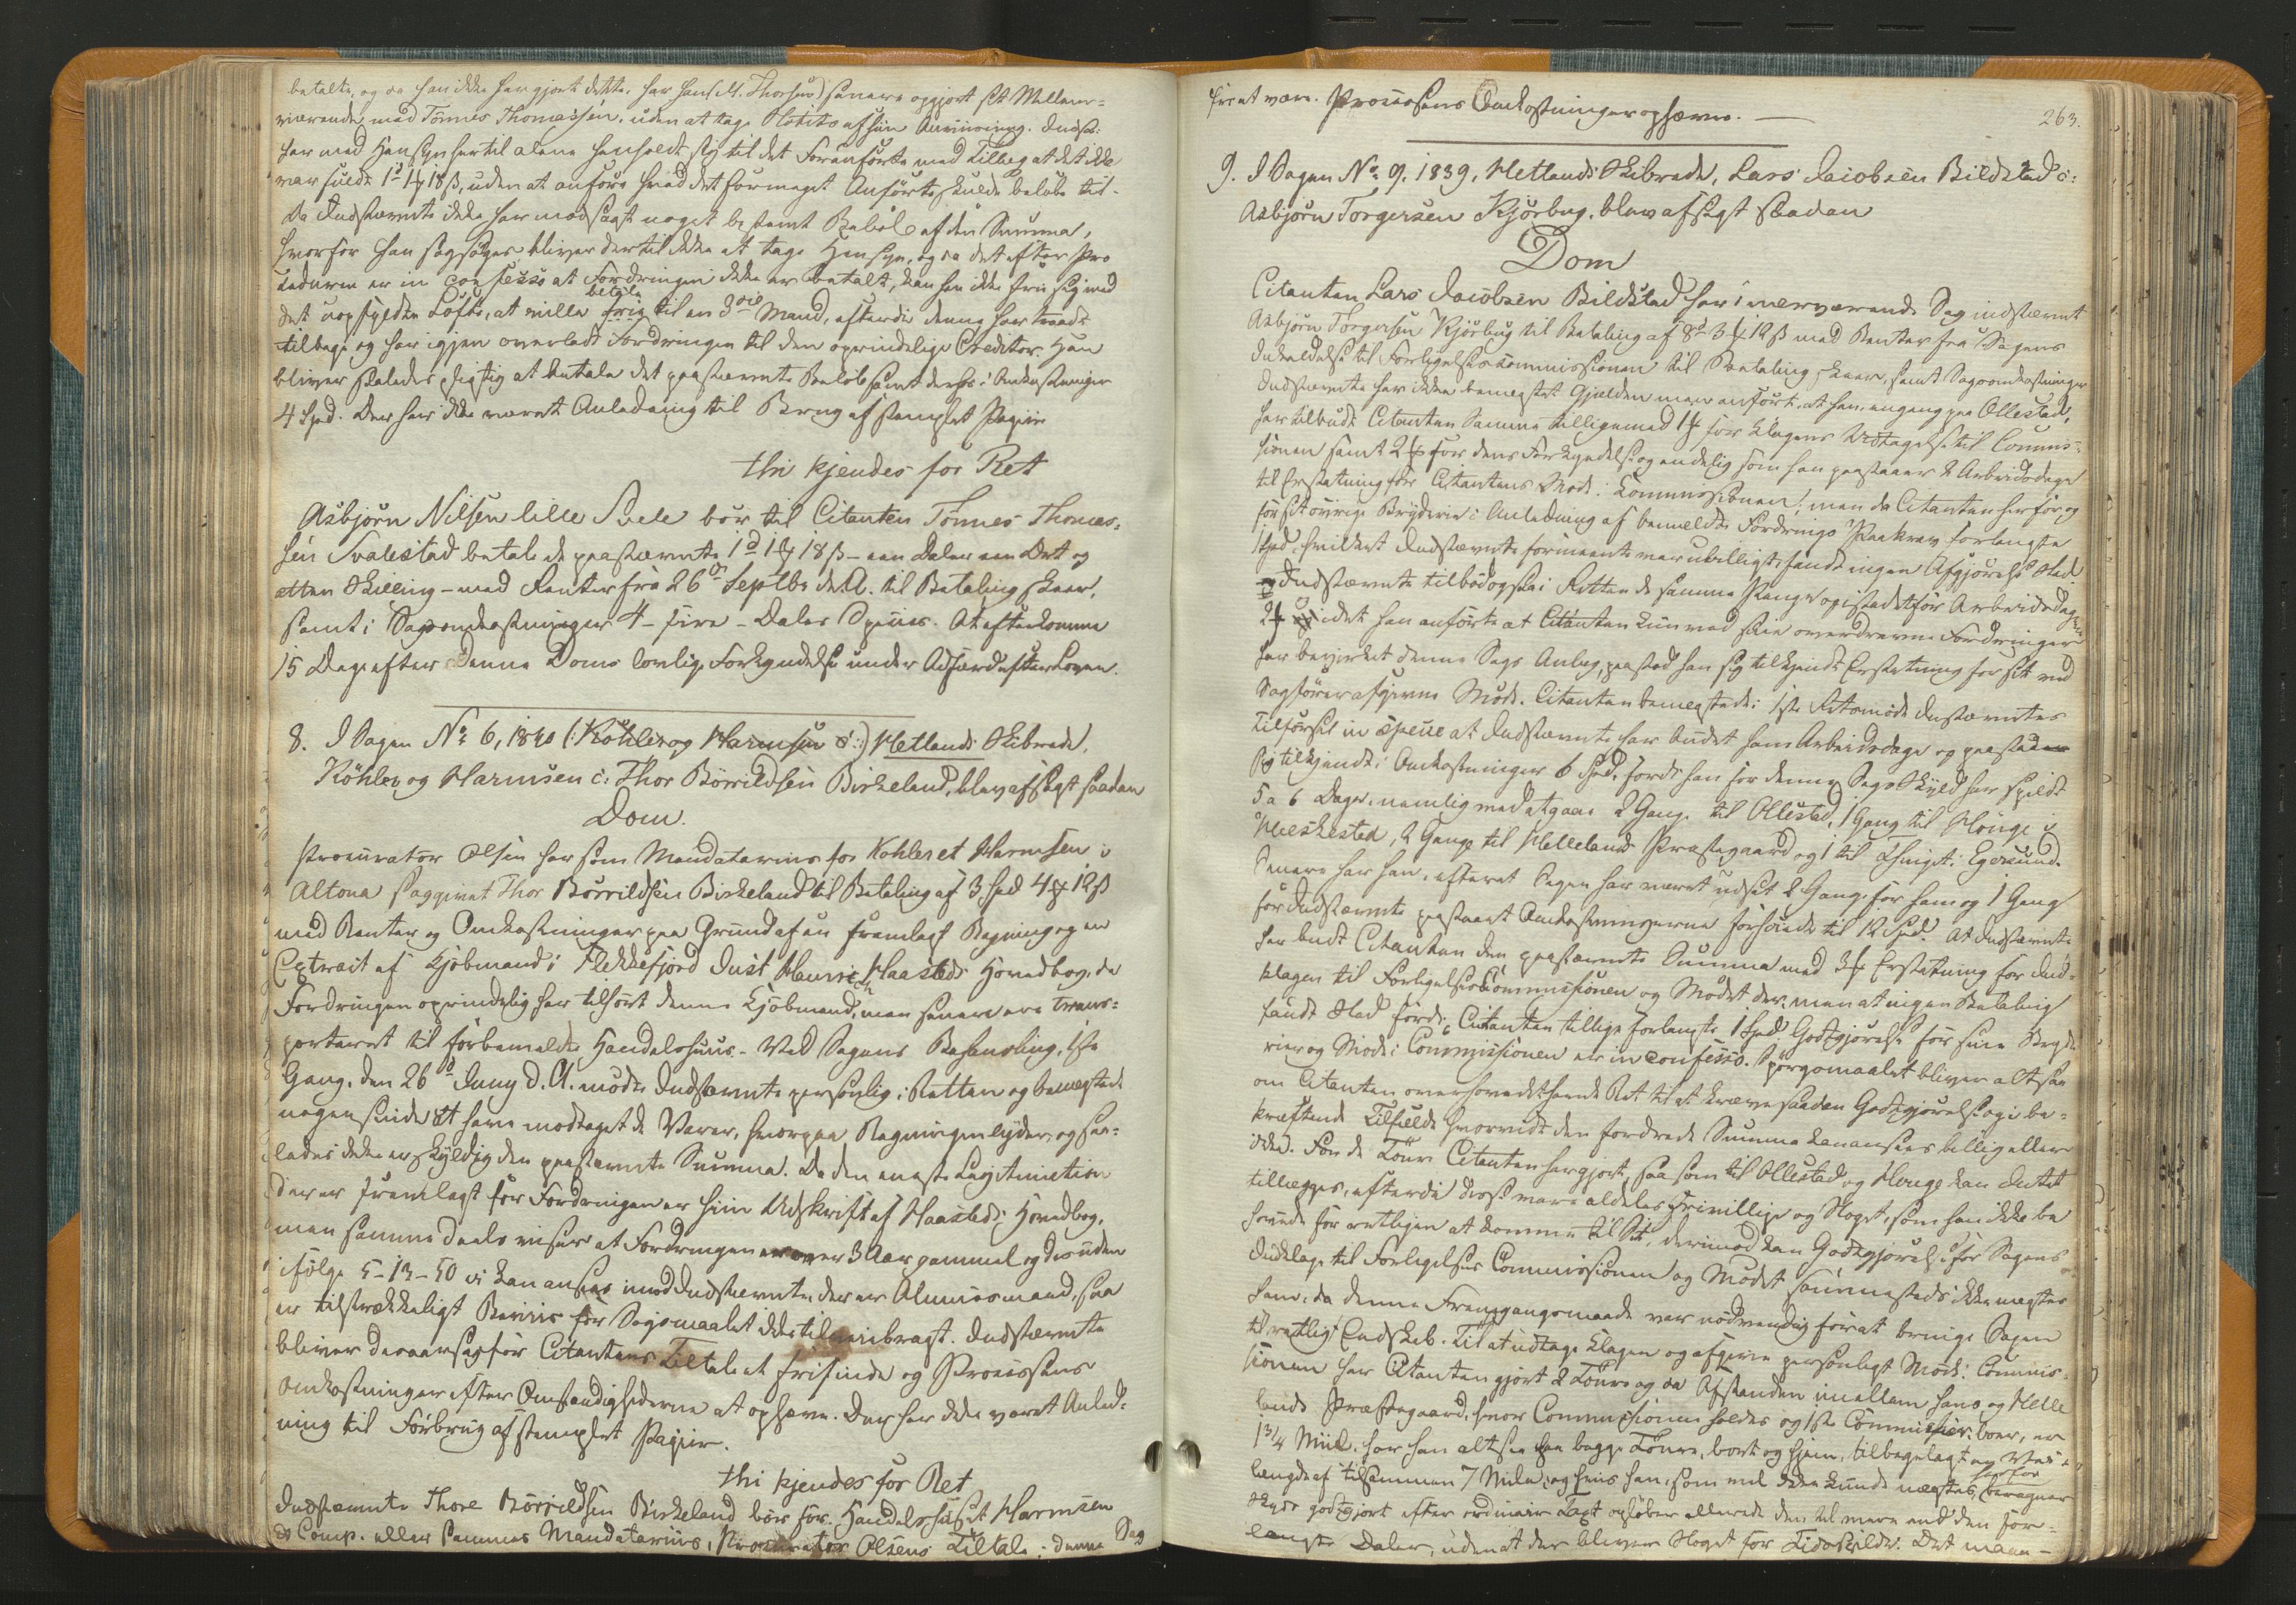 betalte, og da han ikke har gjort dette, har han (A. Thorsen) senere opgjort sit Mellem-
værende med Tönnes Thomassen, uden at tage Notits af hiin Anviisning. Indst:
har med Hensyn hertil alene henholdt sig til det Foranførte med Tillæg at det ikke
var fuldt 1 d 1 ₰ 18 ß, uden at anføre hvad det formeget Anførte skulde beløbe til.
Da Indstævnte ikke har modsagt noget bestemt Beløb af den Summa,
hvorfor han sagsøges, bliver dertil ikke at tage Hensyn, og da det efter Pro
ceduren er in confesso at Fordringen ikke er betalt, kan han ikke frie sig med
det uopfyldte Løfte, at ville betale til en 3die Mand, efterdi denne har traadt
tilbage og har igjen overladt Fordringen til den oprindelige Creditor. Han
bliver saaledes pligtig at betale det paastævnte Beløb samt desuden i Omkostninger
4 Spd. Der har ikke været Anledning til Brug af stemplet Papiir
thi kjendes for Ret
Asbjørn Nilsen lille Svele bør til Citanten Tönnes Thomas-
sen Svalestad betale de paastævnte 1 d 1 ₰ 18 ß – een Daler een Ort og
atten Skilling – med Renter fra 26de Septbr d. A. til Betaling skeer,
samt i Sagsomkostninger 4 – fire – Daler Species. At efterkomme
15 Dage efter denne Doms lovlige Forkyndelse under Adfærd efter Loven.
8. I Sagen No 6, 1840 (: Köhler og Harmsen c :) Hetlands Skibrede,
Köhler og Harmsen c: Thor Börrildsen Birkeland, blev afsagt saadan
Dom.
Procurator Olsen har som Mandatarius for Kohler et Harmsen i
Altona saggivet Thor Börrildsen Birkeland til Betaling af 3 Spd 4 ₰ 12 ß
med Renter og Omkostninger paa Grund af en fremlagt Regning og en
Extract af Kjöbmand i Flekkefjord Just Henrich Haasteds Hovedbog, da
Fordringen oprindelig har tilhørt denne Kjöbmand, men senere er trans-
porteret til forbemeldte Handelshuus. Ved Sagens Behandling 1ste
Gang, den 26de Juny d. A. mødte Indstævnte personlig i Retten og benegtede
nogensinde at have modtaget de Varer, hvorpaa Regningen lyder, og saa-
ledes ikke er skyldig den paastævnte Summa. Da den eneste Legitimation
der er fremlagt for Fordringen er hiin Udskrift af Haasteds Hovedbog,
men samme deels viser at Fordringen er over 3 Aar gammel og desuden
ifølge 5–13–50 ei kan ansees mod Indstævnte, der er Almuesmand, saa
er tilstrækkeligt Beviis for Søgsmaalet ikke tilveiebragt. Indstævnte
bliver desaarsag for Citantens Tiltale at frifinde og Processens
Omkostninger efter Omstændighederne at ophæve. Der har ikke været Anled-
ning til Forbrug af stemplet Papiir.
thi kjendes for Ret
Indstævnte Thore Börrildsen Birkeland bør for Handelshuset Harmsen
& Comp. eller sammes Mandatarius, Procurator Olsens Tiltale i denne Sag
frie at være. Processens Omkostninger ophæves.
263.
9. I Sagen No 9, 1839, Hetlands Skibrede, Lars Jacobsen Bildstad c:
Asbjørn Torgersen Kjörbug, blev afsagt saadan
Dom
Citanten Lars Jacobsen Bildstad har i nærværende Sag indstævnt
Asbjørn Torgersen Kjörbug til Betaling af 8 d 3 ₰ 12 ß med Renter fra Sagens
Indkaldelse til Forligelsescommissionen til Betaling skeer, samt Sagsomkostninger.
Indstævnte har ikke benegtet Gjælden men anført, at han, engang paa Ollestad,
har tilbudt Citanten Samme tilligemed 1 ₰ for Klagens Udtagelse til Commis-
sionen samt 2 ₰ for dens Forkyndelse og endelig som han paastaaer 2 Arbeidsdage
til Erstatning for Citantens Møde i Commissionen; men da Citanten herfor og
for sit øvrige Bryderie i Anledning af bemeldte Fordrings Paakrav forlangte
1 Spd, hvilket Indstævnte formeente var ubilligt, fandt ingen Afgjørelse Sted
Indstævnte tilbød ogsaa i Retten de samme Penge og istedetfor Arbeidsdagene
2 ₰ og idet han anførte at Citanten kun ved sine overdrevne Fordringer
har bevirket denne Sags Anlæg, paastod han sig tilkjendt Erstatning for sit ved
Sagfører afgivne Møde. Citanten benegtede i 1ste Retsmøde Indstævntes
Tilførsel in specie at Indstævnte har budet ham Arbeidsdage og paastod
sig tilkjendt i Omkostninger 6 Spd, fordi han for denne Sags Skyld har spildt
5 a 6 Dage, nemlig ved at gaae 2 Gange til Ollestad, 1 Gang til Houge i
Heskestad, 2 Gange til Hellelands Præstegaard og 1 til Thinget i Egersund.
Senere har han, efterat Sagen har været udsat 2 Gange for ham og 1 Gang
for Indstævnte paastaaet Omkostningerne forhøiede til 12 Spd. At Indstævnte
har budt Citanten den paastævnte Summa med 3 ₰ Erstatning for Ind-
klagen til Forligelsescommissionen og Mødet der, men at ingen Betaling
fandt Sted fordi Citanten tillige forlangte 1 Spd. Godtgjørelse for sine Bryde-
rier og Møde i Commissionen er in confesso. Spørgsmaalet bliver altsaa
om Citanten overhovedet havde Ret til at kræve saadan Godtgjørelse og i be-
kræftende Tilfælde hvorvidt den fordrede Summa kan ansees billig eller
ikke. For de Toure Citanten har gjort, saa som til Ollestad og Houge kan Intet
tillægges, efterdi disse vare aldeles frivillige og Noget, som han ikke be
høvede for retligen at komme til Sit, derimod kan Godtgjørelse for Sagens
Indklage til Forligelses Commissionen og Mødet sammesteds ikke negtes
ham, da denne Fremgangsmaade var nødvendig forat bringe Sagen
til retligt Endskab. Til at udtage Klagen og afgive personligt Møde i Commis-
sionen har Citanten gjort 2 Toure og da Afstanden imellem hans og Helle
lands Præstegaard, hvor Commissionen holdes og 1ste Commissær boer, er
1¾ Miil, har han altsaa paa begge Toure, bort og hjem, tilbagelagt en Vei-
længde af tilsammen 7 Mile, og hvis han, som vel ikke kunde negtes, herfor beregner
Skyds godtgjort efter ordinair Taxt opløber allerede den til mere end den for-
langte Daler, uden at der bliver Noget for Tidsspilde. Det maae